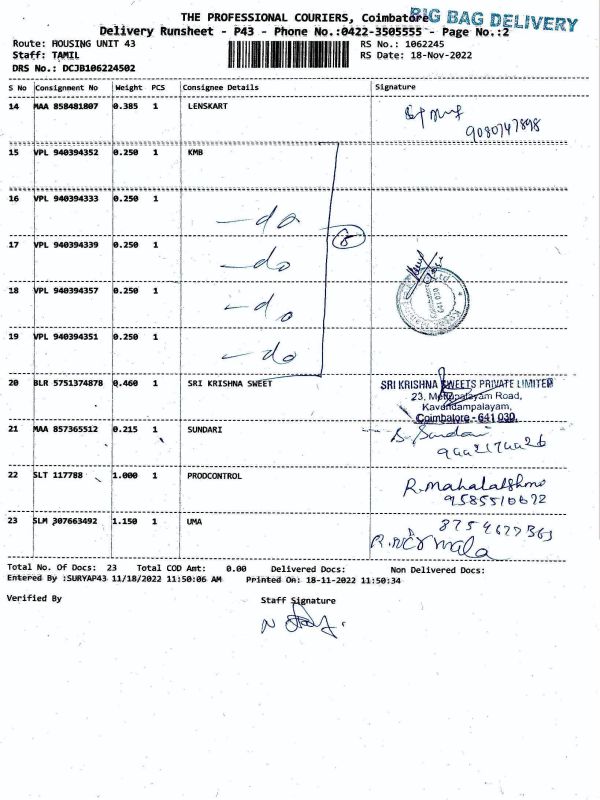 THE PROFESSIONAL COURIERS, Coimbatore BIG BAG DELIVERY
Delivery Runsheet - P43 - Phone No.:0422-3505555 - Page No.:2
Route: HOUSING UNIT 43 RS No.: 1062245
Staff: TAMIL RS Date: 18-Nov-2022
DRS No.: DCJB106224502
S No Consignment No Weight PCS Consignee Details Signature
14 MAA 858481807 0.385 1 LENSKART
9080747898
15 VPL 940394352 0.250 1 KMB
16 VPL 940394333 0.250 1
- do
17 VPL 940394339 0.250 1
- do
18 VPL 940394357 0.250 1
- do
19 VPL 940394351 0.250 1
- do
20 BLR 5751374878 0.460 1 SRI KRISHNA SWEET SRI KRISHNA SWEETS PRIVATE LIMITED
23, Mettupalayam Road,
Kavundampalayam,
Coimbatore - 641 030.
21 MAA 857365512 0.215 1 SUNDARI S. Sundari
22 SLT 117788 1.000 1 PRODCONTROL R. Mahalakshmi
23 SLM 307663492 1.150 1 UMA
Total No. Of Docs: 23 Total COD Amt: 0.00 Delivered Docs: Non Delivered Docs:
Entered By :SURYAP43 11/18/2022 11:50:06 AM Printed On: 18-11-2022 11:50:34
Verified By Staff Signature